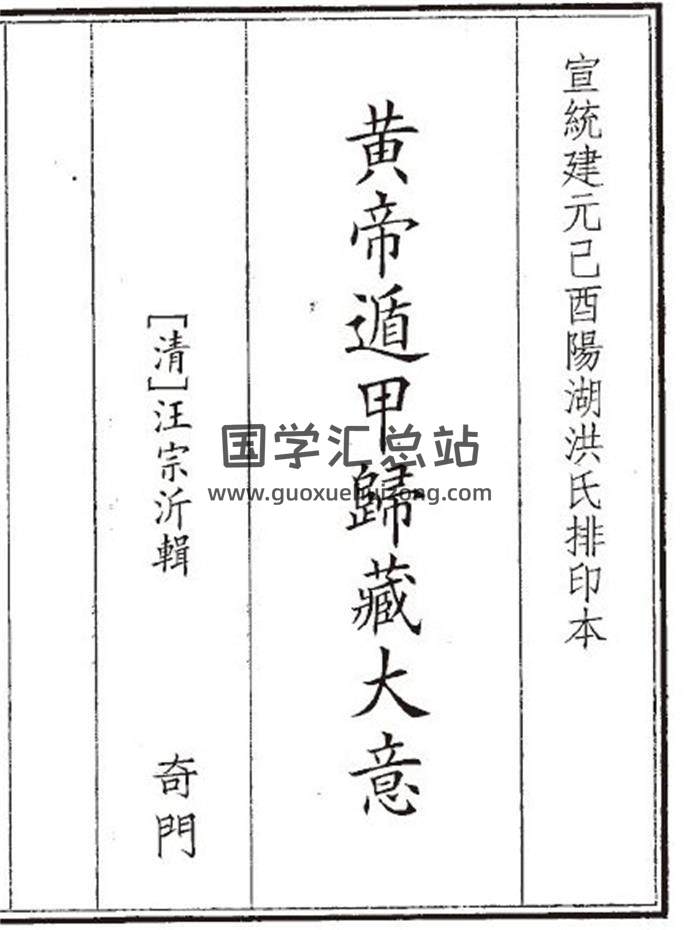 宣統建元己酉陽湖洪氏排印本
黄帝遁甲歸藏大意
[清]汪宗沂輯
奇門
国学汇总站
www.guoxuehuizong.com